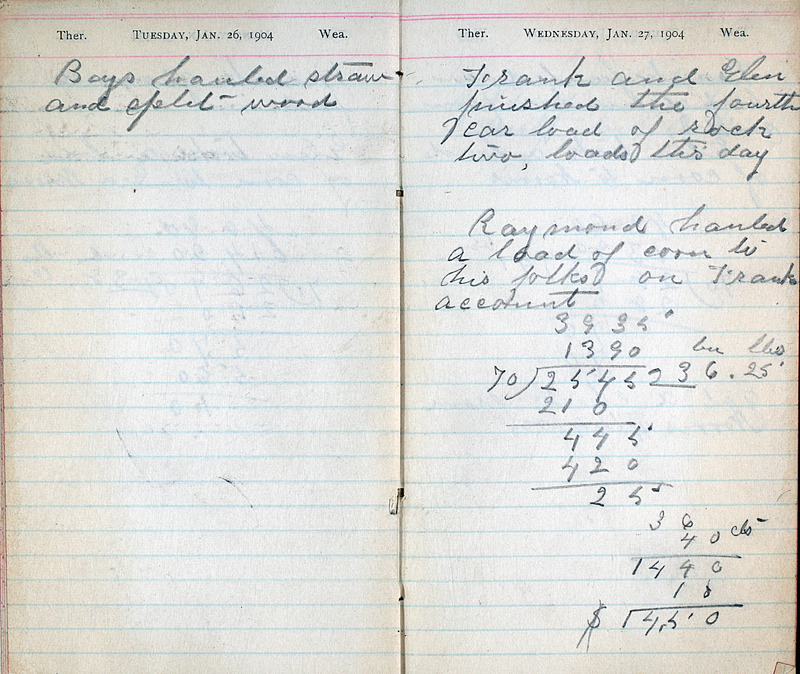 Ther. TUESDAY, JAN. 26, 1904 Wea.
Boys hauled straw
and split wood
Ther. WEDNESDAY, JAN. 27, 1904 Wea.
Frank and Glen
finished the fourth
Year load of rock
two, loads this day
Raymond hauled
a load of corn to
his folks on Frank
account
3935
1390
bu lbs
70)2545 36.25
210
445
420
25
36
40 cts
1440
10
$ 14.50